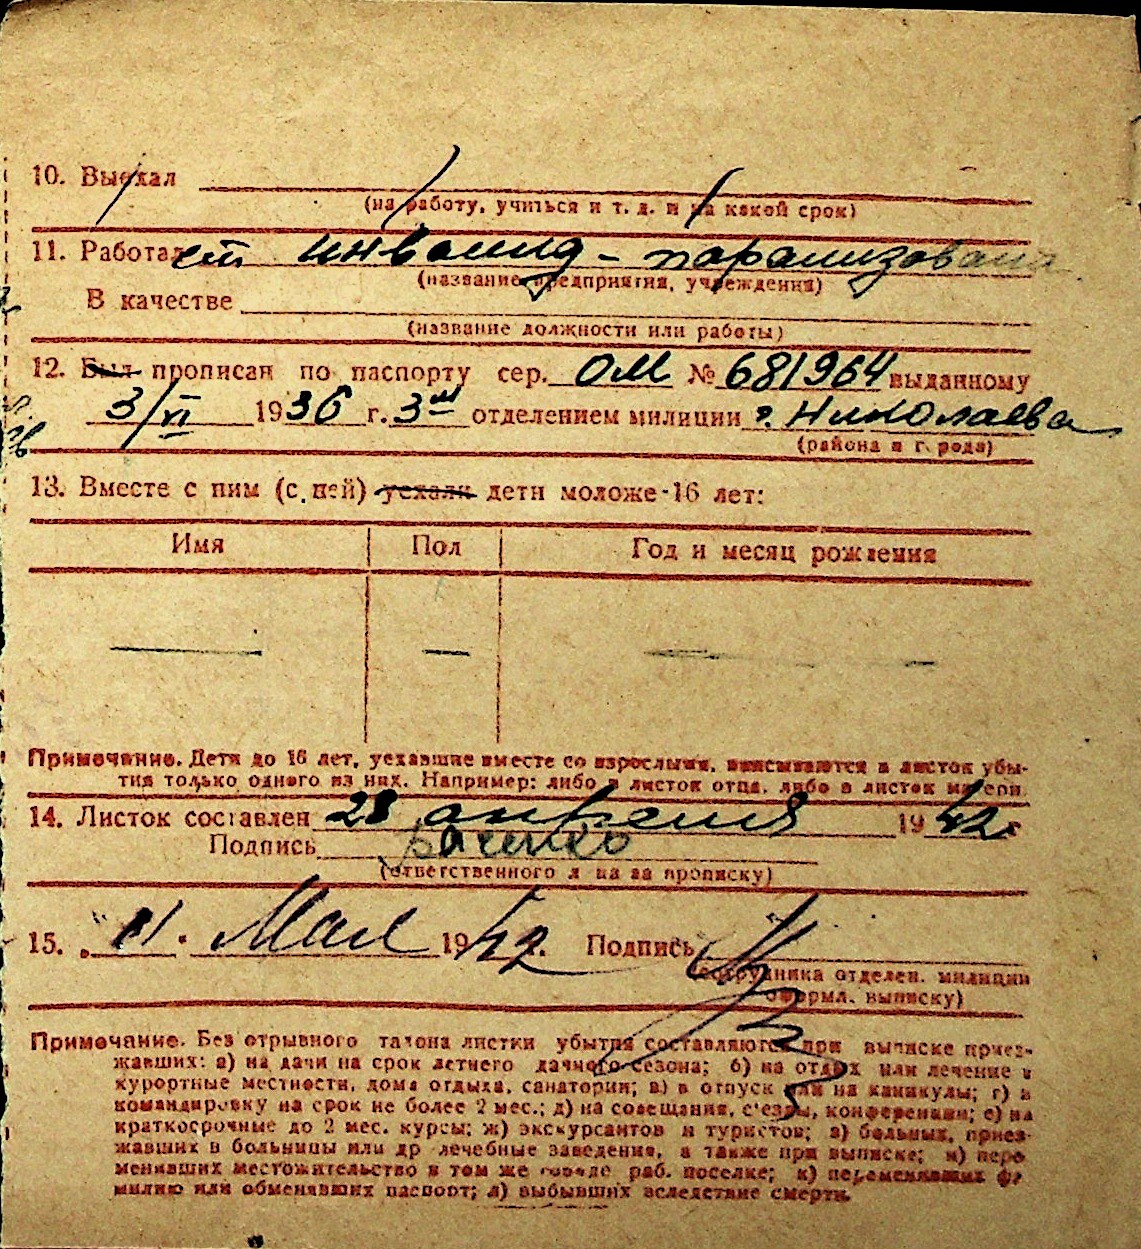 10. Выехал
(на работу, учиться и т. д. и на какой срок)
11. Работал ст инвалид - парализована
(название предприятия, учреждения)
В качестве
(название должности или работы)
12. Был прописан по паспорту сер. ОМ № 681964 выданному
3/VI 1936 г. 3м отделением милиции г. Николаева
(района и города)
13. Вместе с ним (с ней) уехали дети моложе 16 лет:
Имя Пол Год и месяц рождения
— — —
Примечание. Дети до 16 лет, уехавшие вместе со взрослыми, вписываются в листок убы-
тия только одного из них. Например: либо в листок отца, либо в листок матери
14. Листок составлен 28 апреля 1942 г.
Подпись
(ответственного лица за прописку)
15. „11" Мая 1942. Подпись
(сотрудника отделен. милиции
оформл. выписку)
Примечание. Без отрывного талона листки убытия составляются при выписке приез-
жавших: а) на дачи на срок летнего дачного сезона; б) на отдых или лечение в
курортные местности, дома отдыха, санатории; в) в отпуск или на каникулы; г) в
командировку на срок не более 2 мес.; д) на совещания, съезды, конференции; е) на
краткосрочные до 2 мес. курсы; ж) экскурсантов и туристов; з) больных, приез-
жавших в больницы или др лечебные заведения, а также при выписке; и) пере
менивших местожительство в том же городе раб. поселке; к) переменивших фа
милию или обменявших паспорт; л) выбывших вследствие смерти.